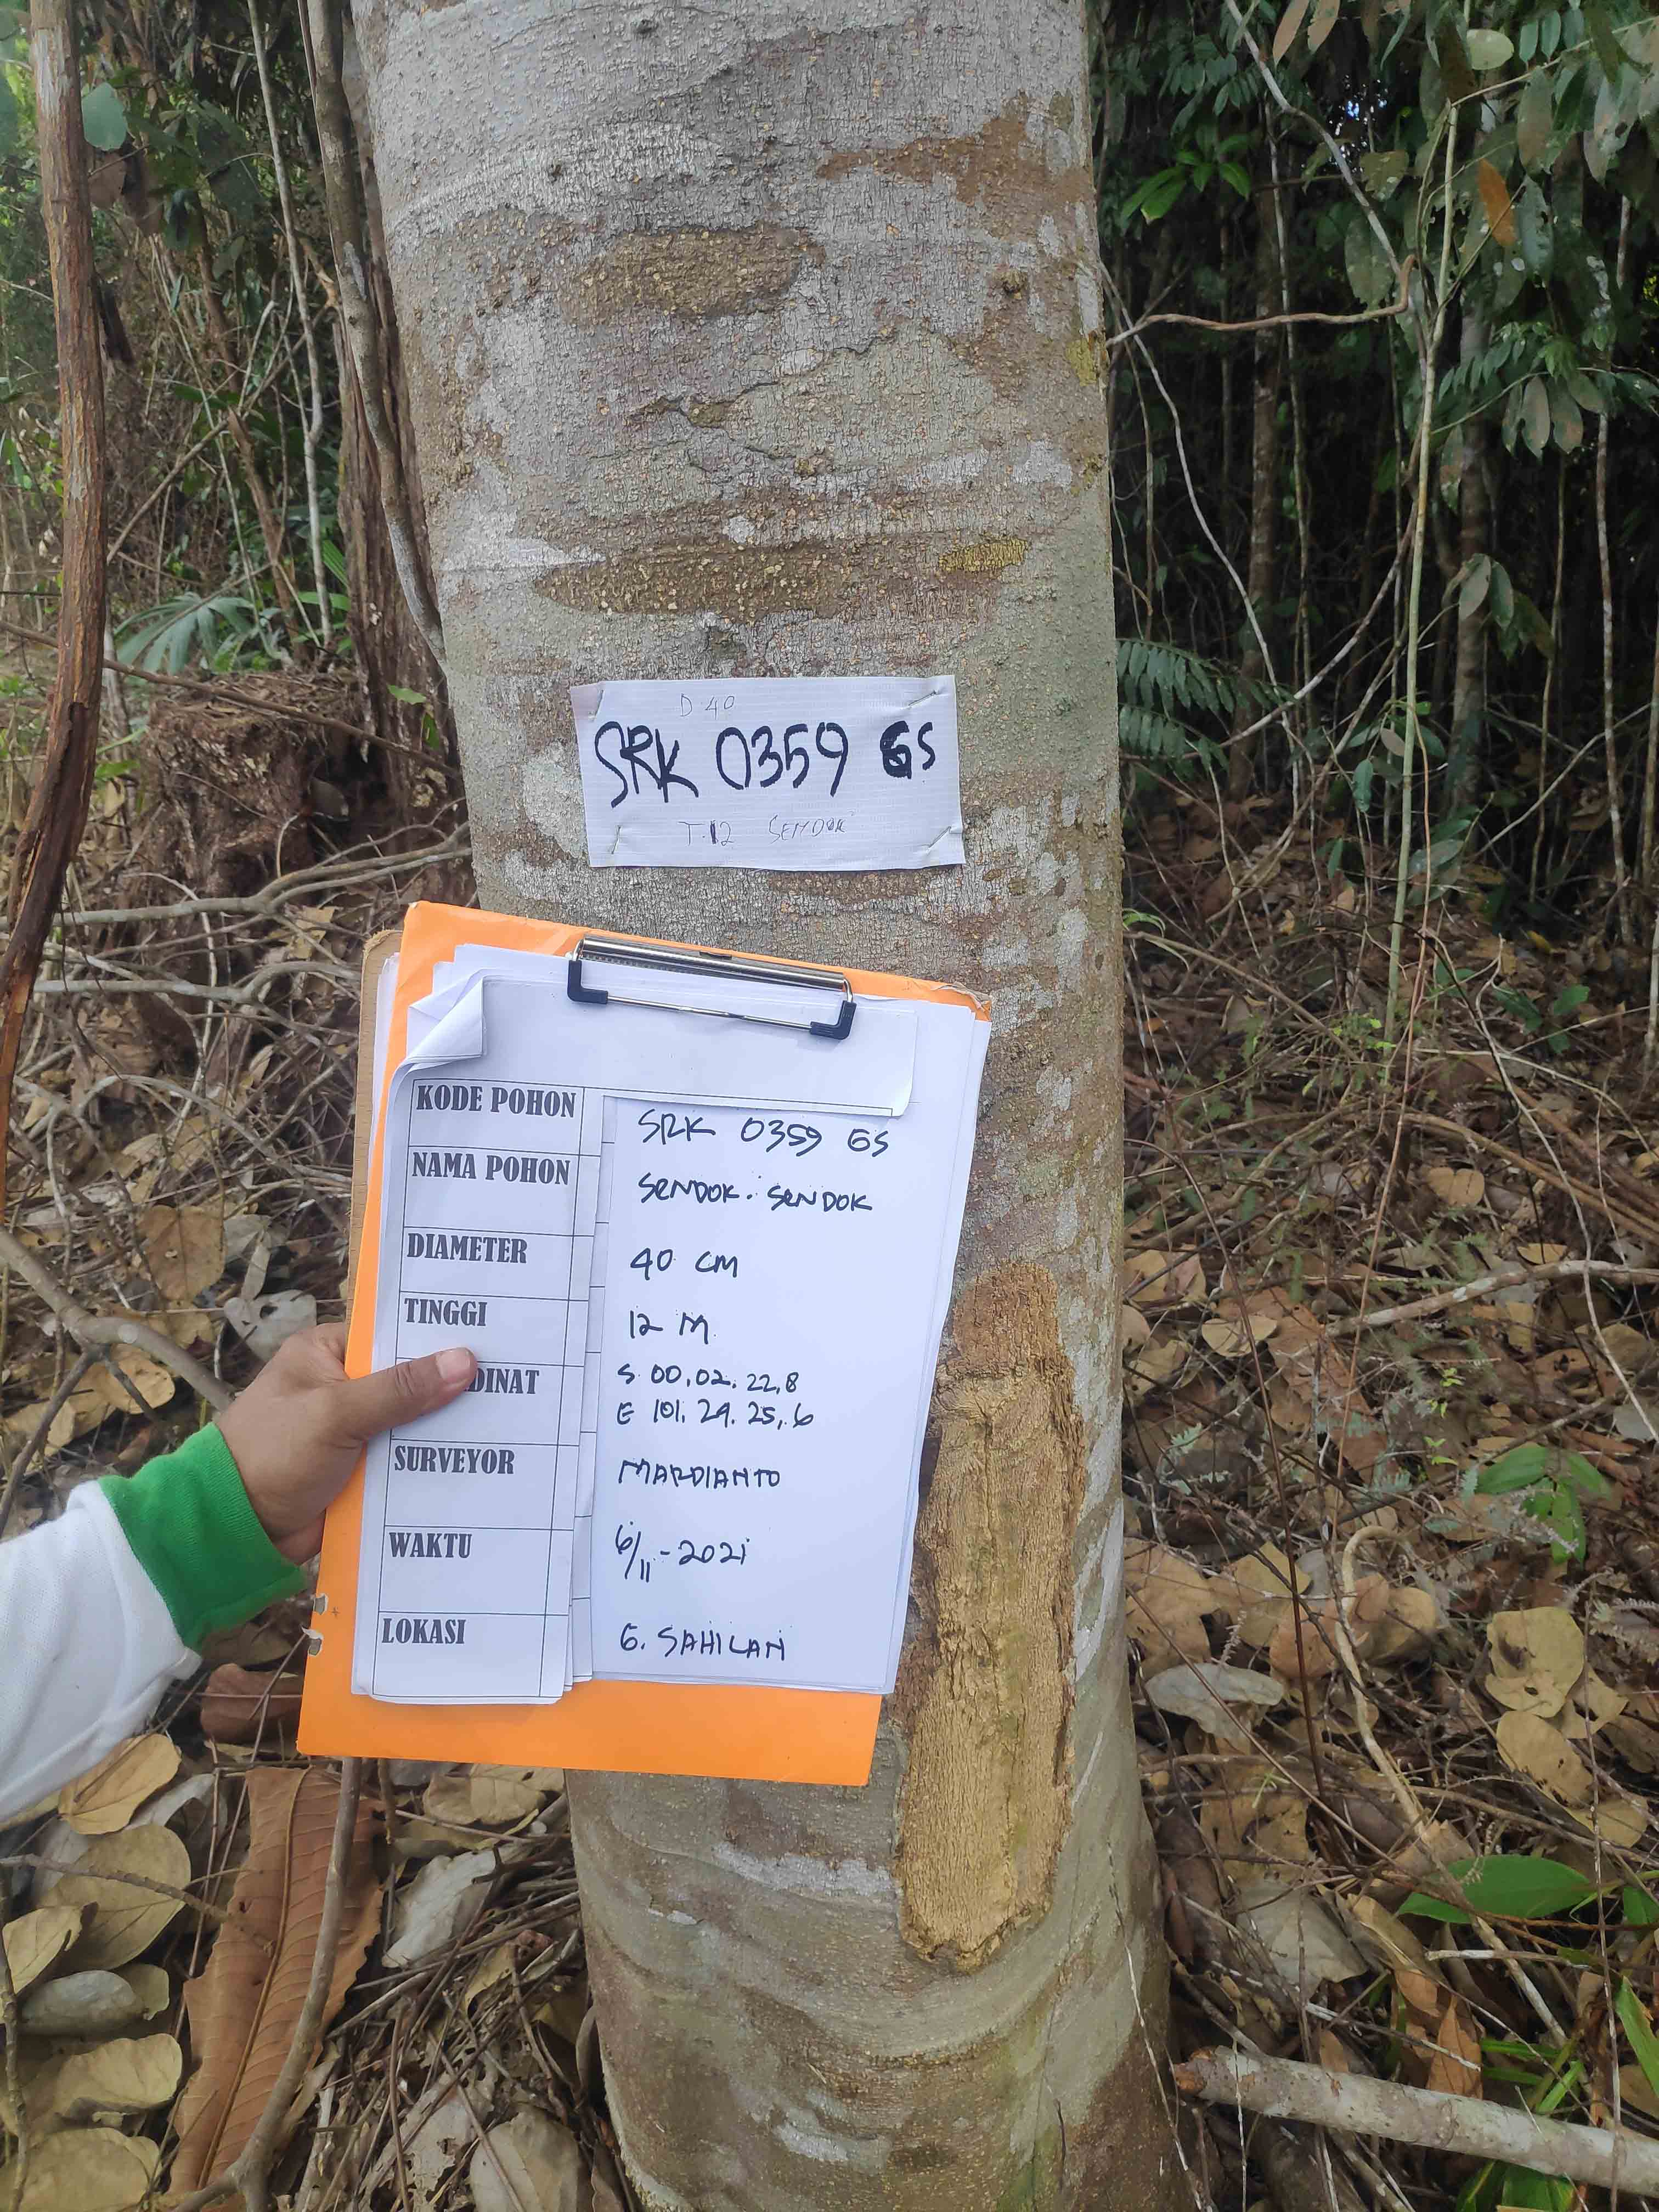 D 40
SRK 0359 GS
T.12 SENDOK
KODE POHON SRK 0359 GS
NAMA POHON SENDOK. SENDOK
DIAMETER 40 CM
TINGGI 12 M
DINAT S 00,02.22,8
E 101.29.25,6
SURVEYOR MARDIANTO
WAKTU 6/11-2021
LOKASI G. SAHILAN